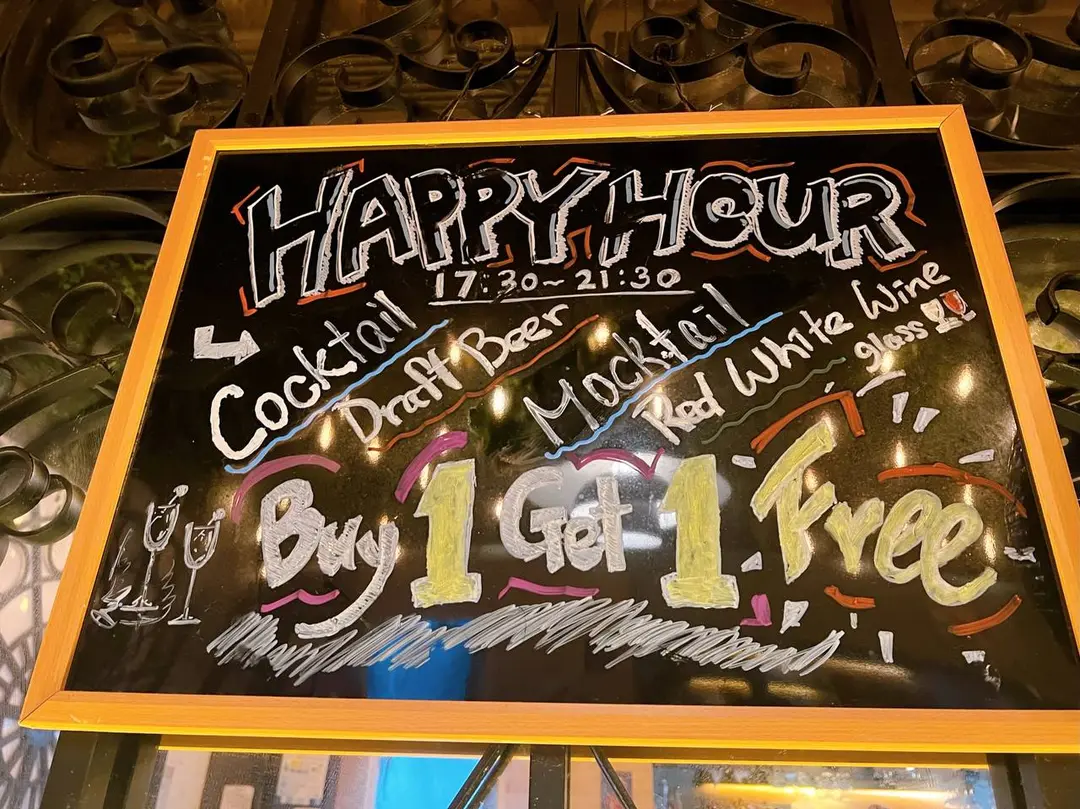 HAPPY HOUR
17:30~21:30
Cocktail Draft Beer Mocktail Red White Wine
glass
Buy 1 Get 1 Free